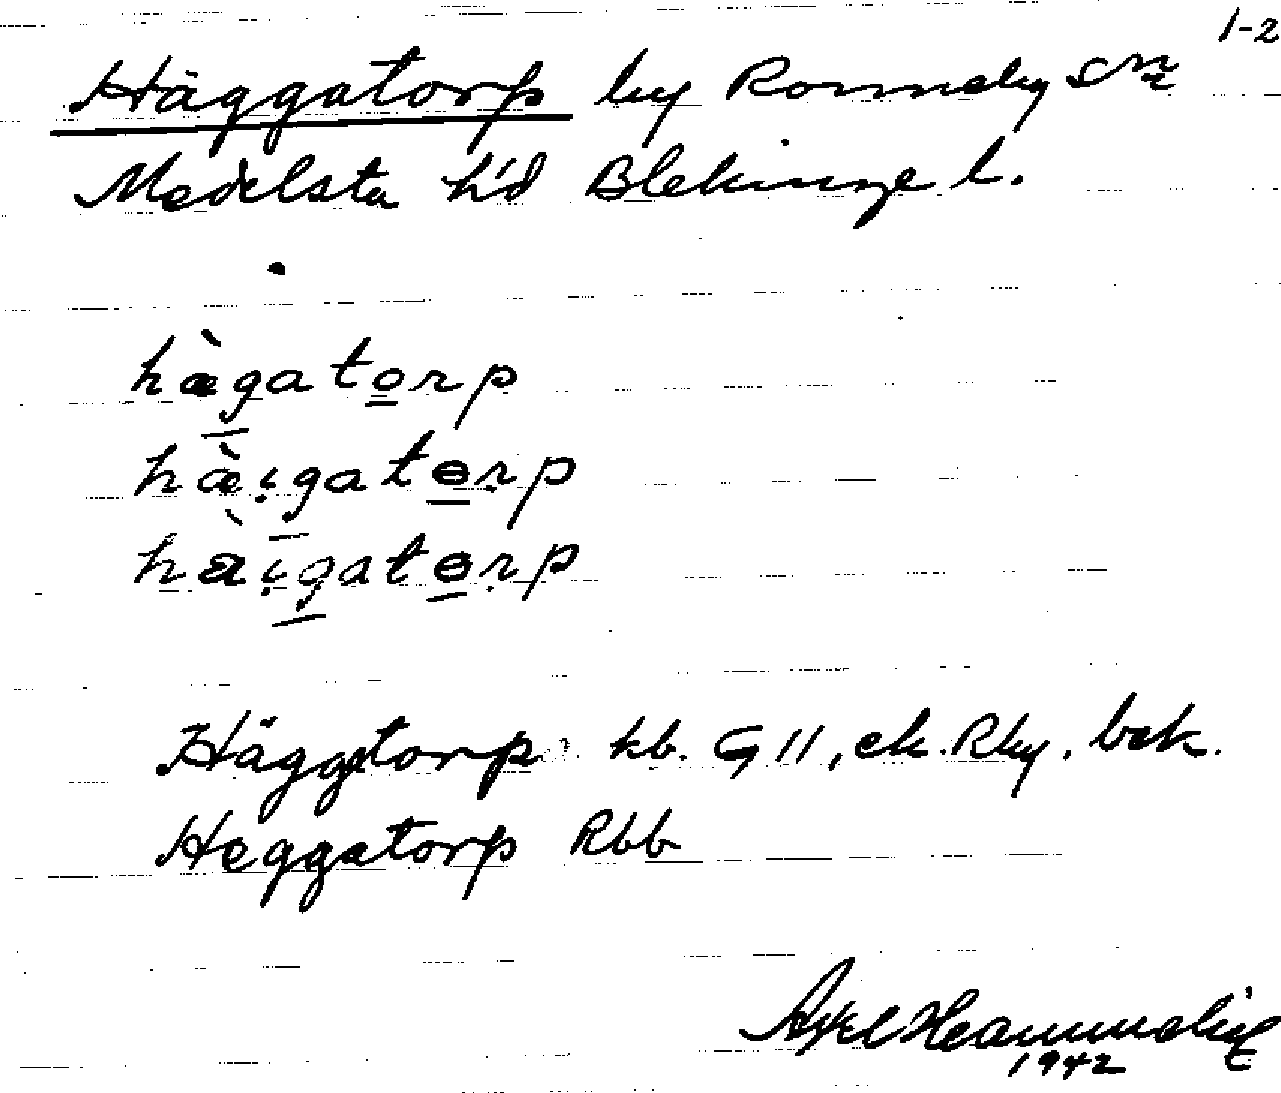 1-2
Häggatorp by Ronneby sn
Medelsta h'd Blekinge l.
hæ̀gatorp
hæ̀i̭gatɵrp
hài̭gatɵrp
Häggatorp kb. G 11, ek. Rby. bek.
Heggatorp Rbb
Axel
1942